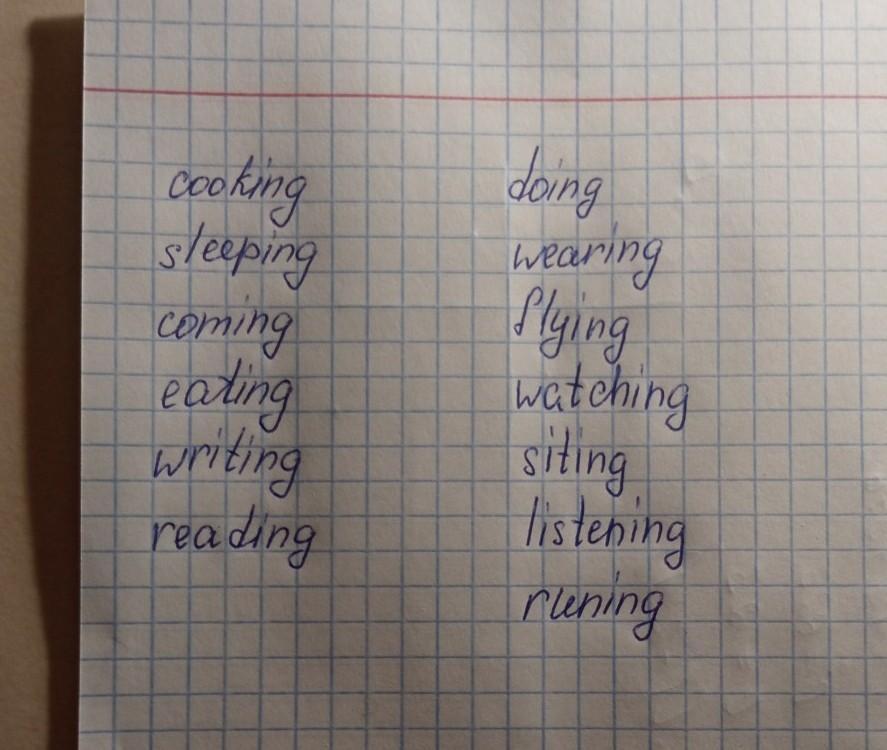 cooking
sleeping
coming
eating
writing
reading
doing
wearing
flying
watching
siting
listening
runing